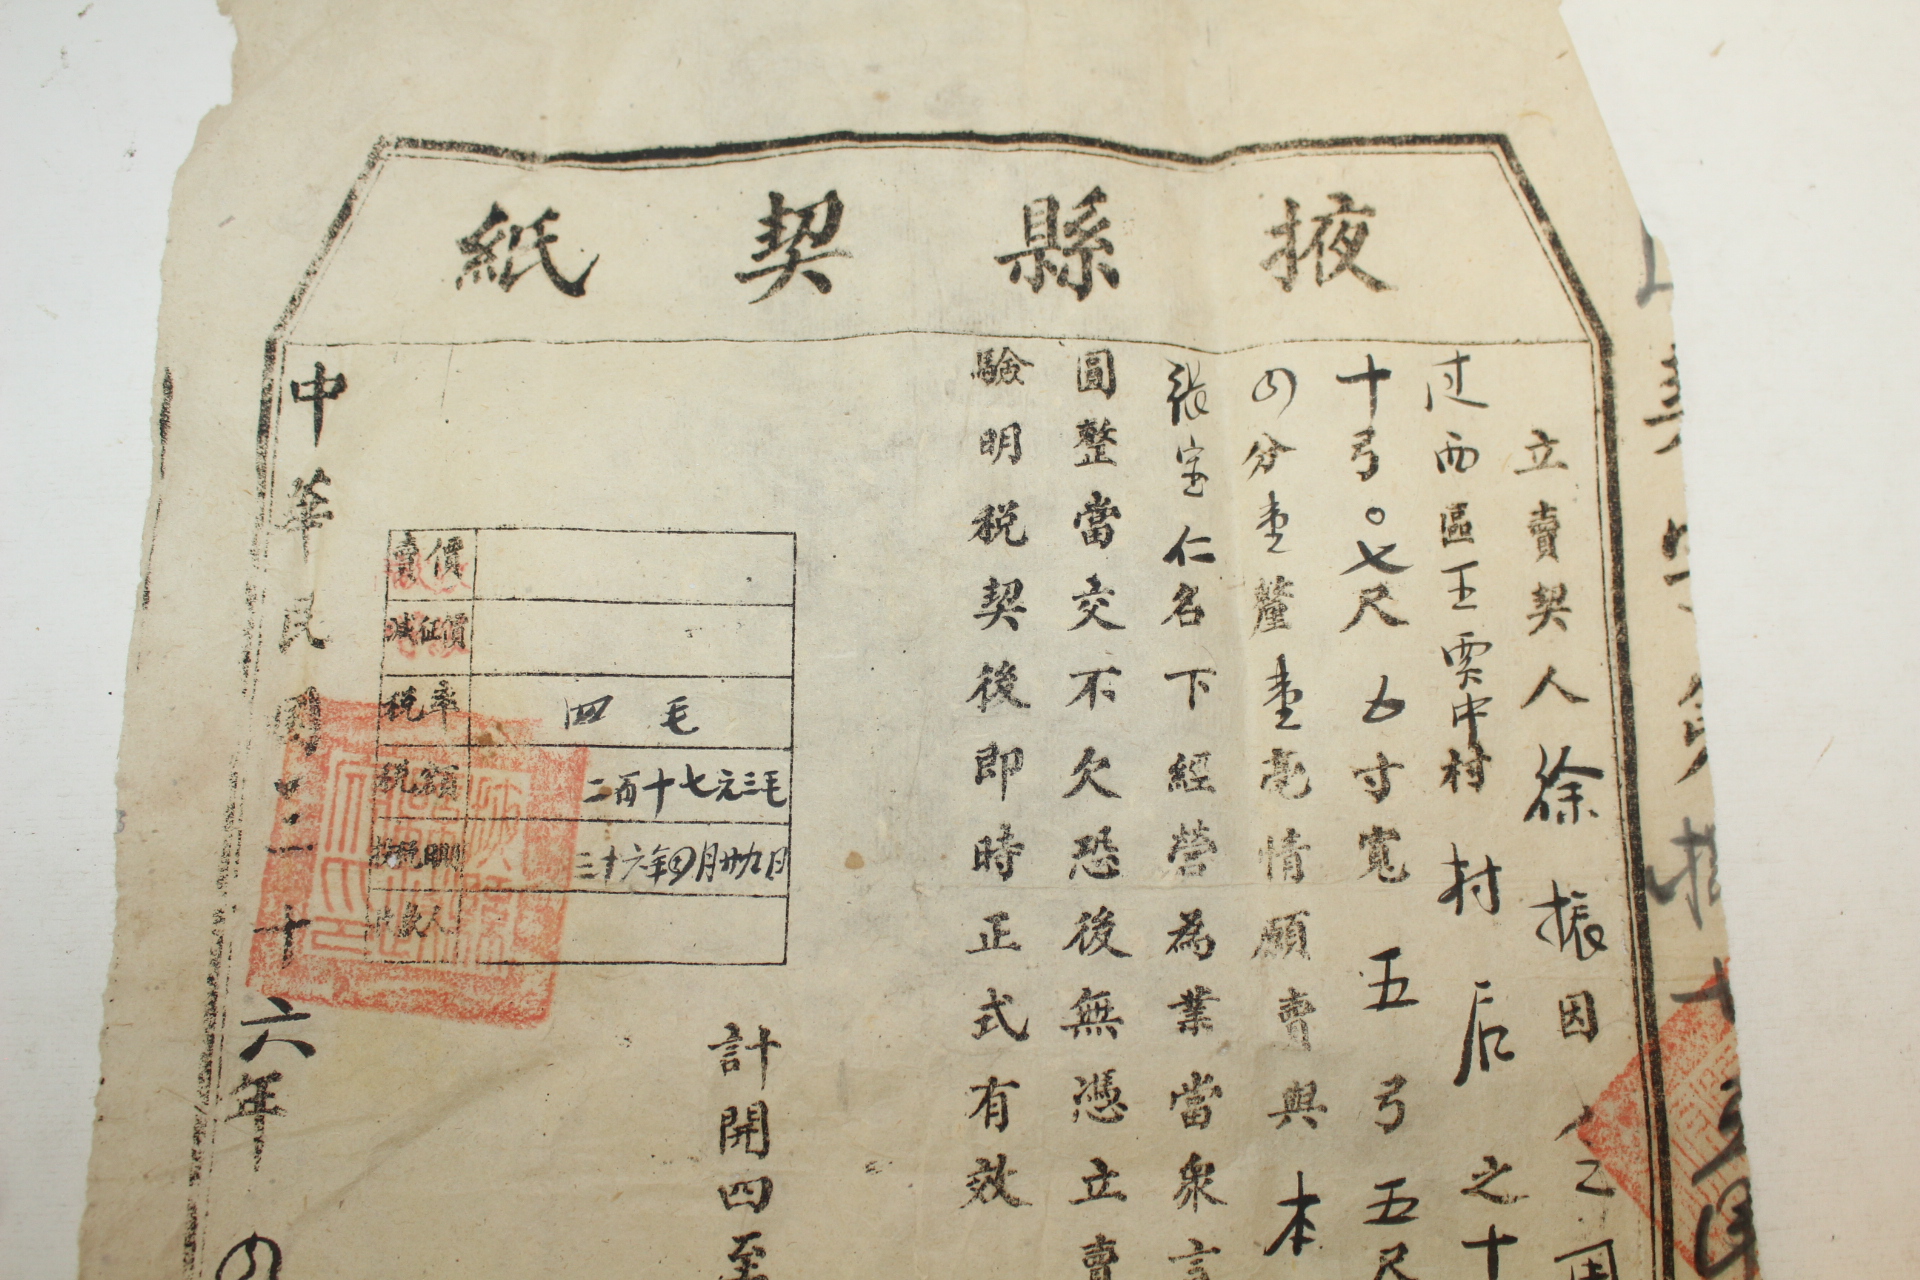 掖縣契紙
立賣契人徐振因
过西區王賈中村村后之十
十弓〇七尺五寸寬五弓五尺
四分壹釐壹毫情願賣與本
張宝仁名下經營為業當衆言
圓整當交不欠恐後無憑立賣
驗明税契後即時正式有效
計開四至
賣價
減征價
税率 四毛
税額 二百十七元三毛
三十六年四月廿九日
中華民國三十六年四